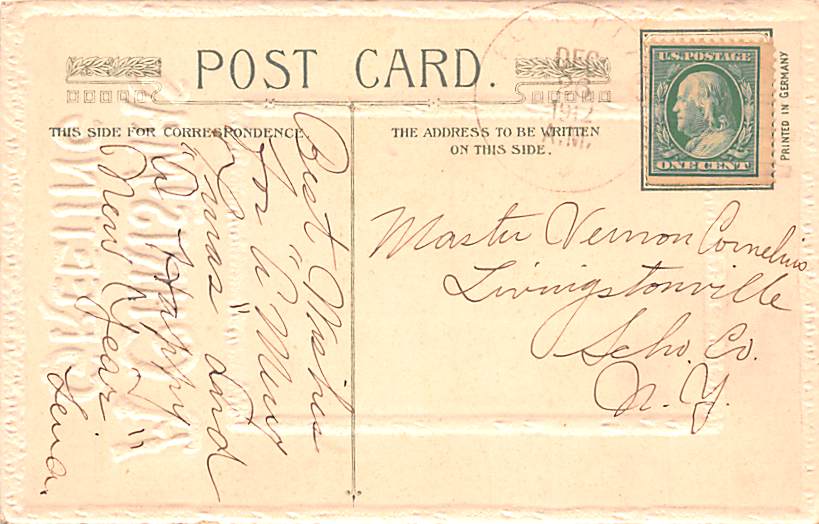 POST CARD.
THIS SIDE FOR CORRESPONDENCE.
THE ADDRESS TO BE WRITTEN
ON THIS SIDE.
DEC
1912
U.S. POSTAGE
ONE CENT
PRINTED IN GERMANY
Best Wishes
for "A Merry
Xmas" and
"A Happy
New Year"
Lena.
Master Vernon Cornelius
Livingstonville
Scho. Co.
N. Y.